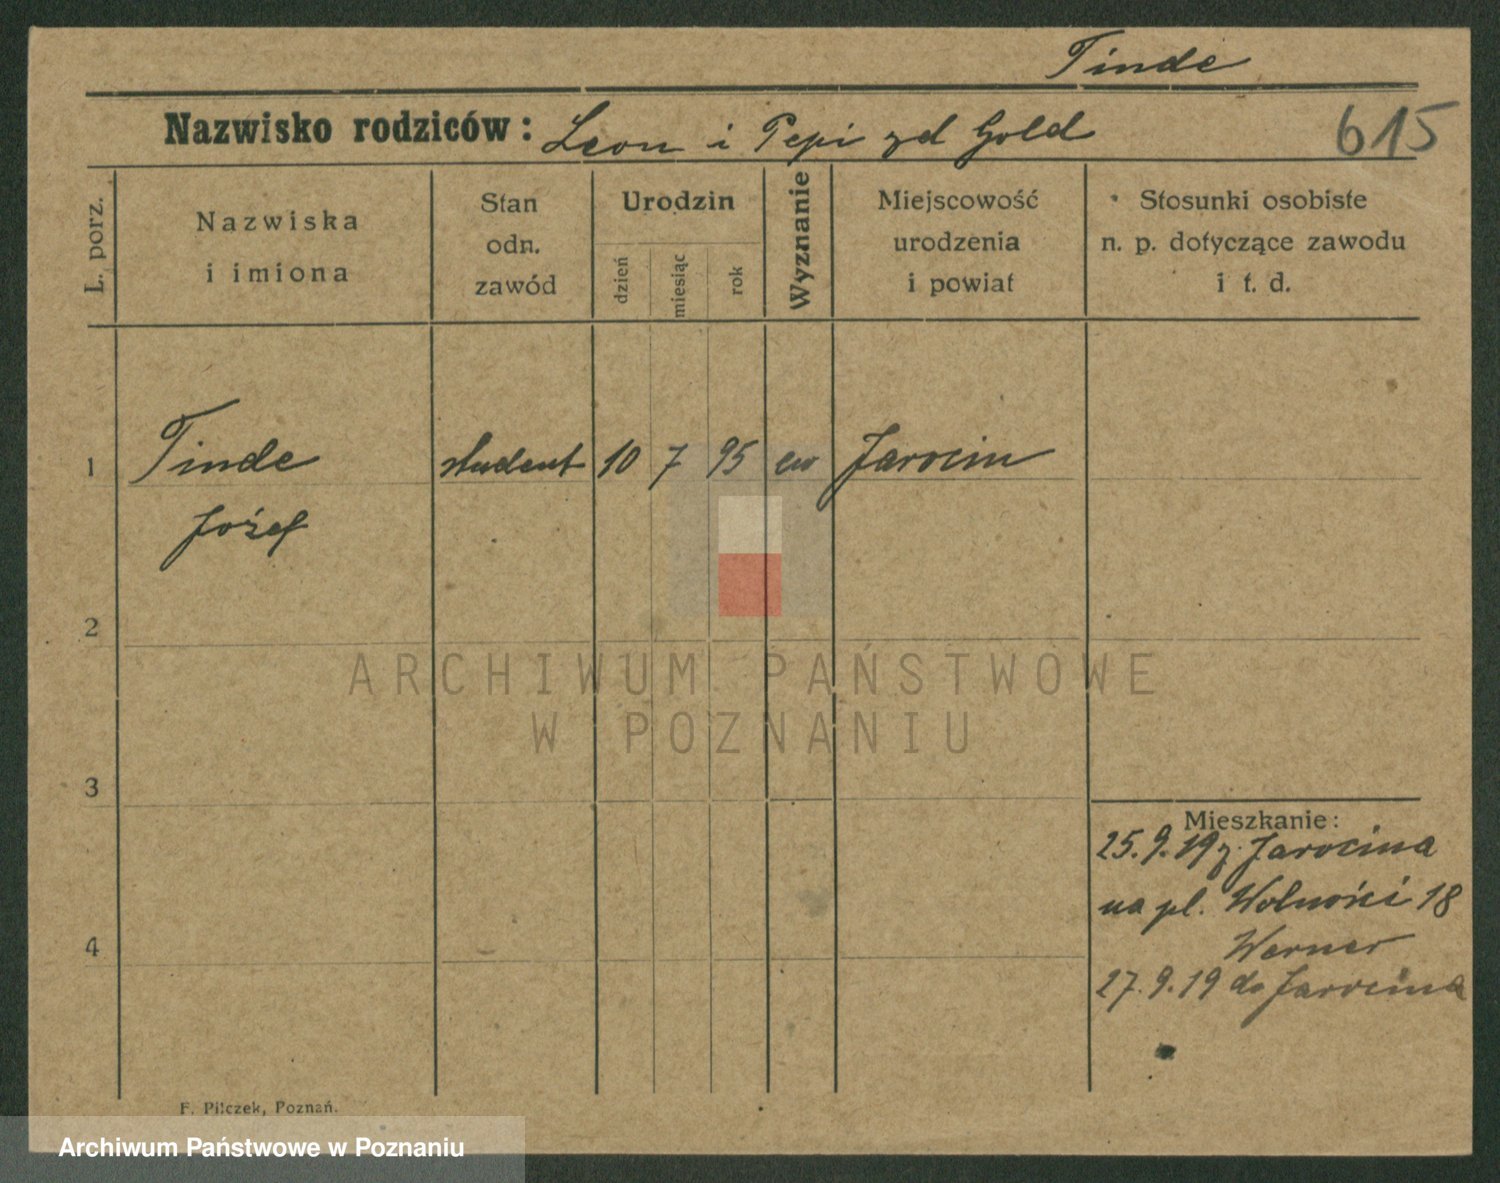 Tinde
Nazwisko rodziców: Leon i Pepi zd Gold
615
L. porz.
Nazwiska
i imiona
Stan
odn.
zawód
Urodzin
dzień
miesiąc
rok
Wyznanie
Miejscowość
urodzenia
i powiat
Stosunki osobiste
n. p. dotyczące zawodu
i t. d.
1 Tinde student 10 7 95 ew Jarocin
Józef
2
ARCHIWUM PAŃSTWOWE
W POZNANIU
3
Mieszkanie:
25.9.19 z Jarocina
na pl. Wolności 18
Werner
4
27.9.19 do Jarocina
F. Pilczek, Poznań.
Archiwum Państwowe w Poznaniu